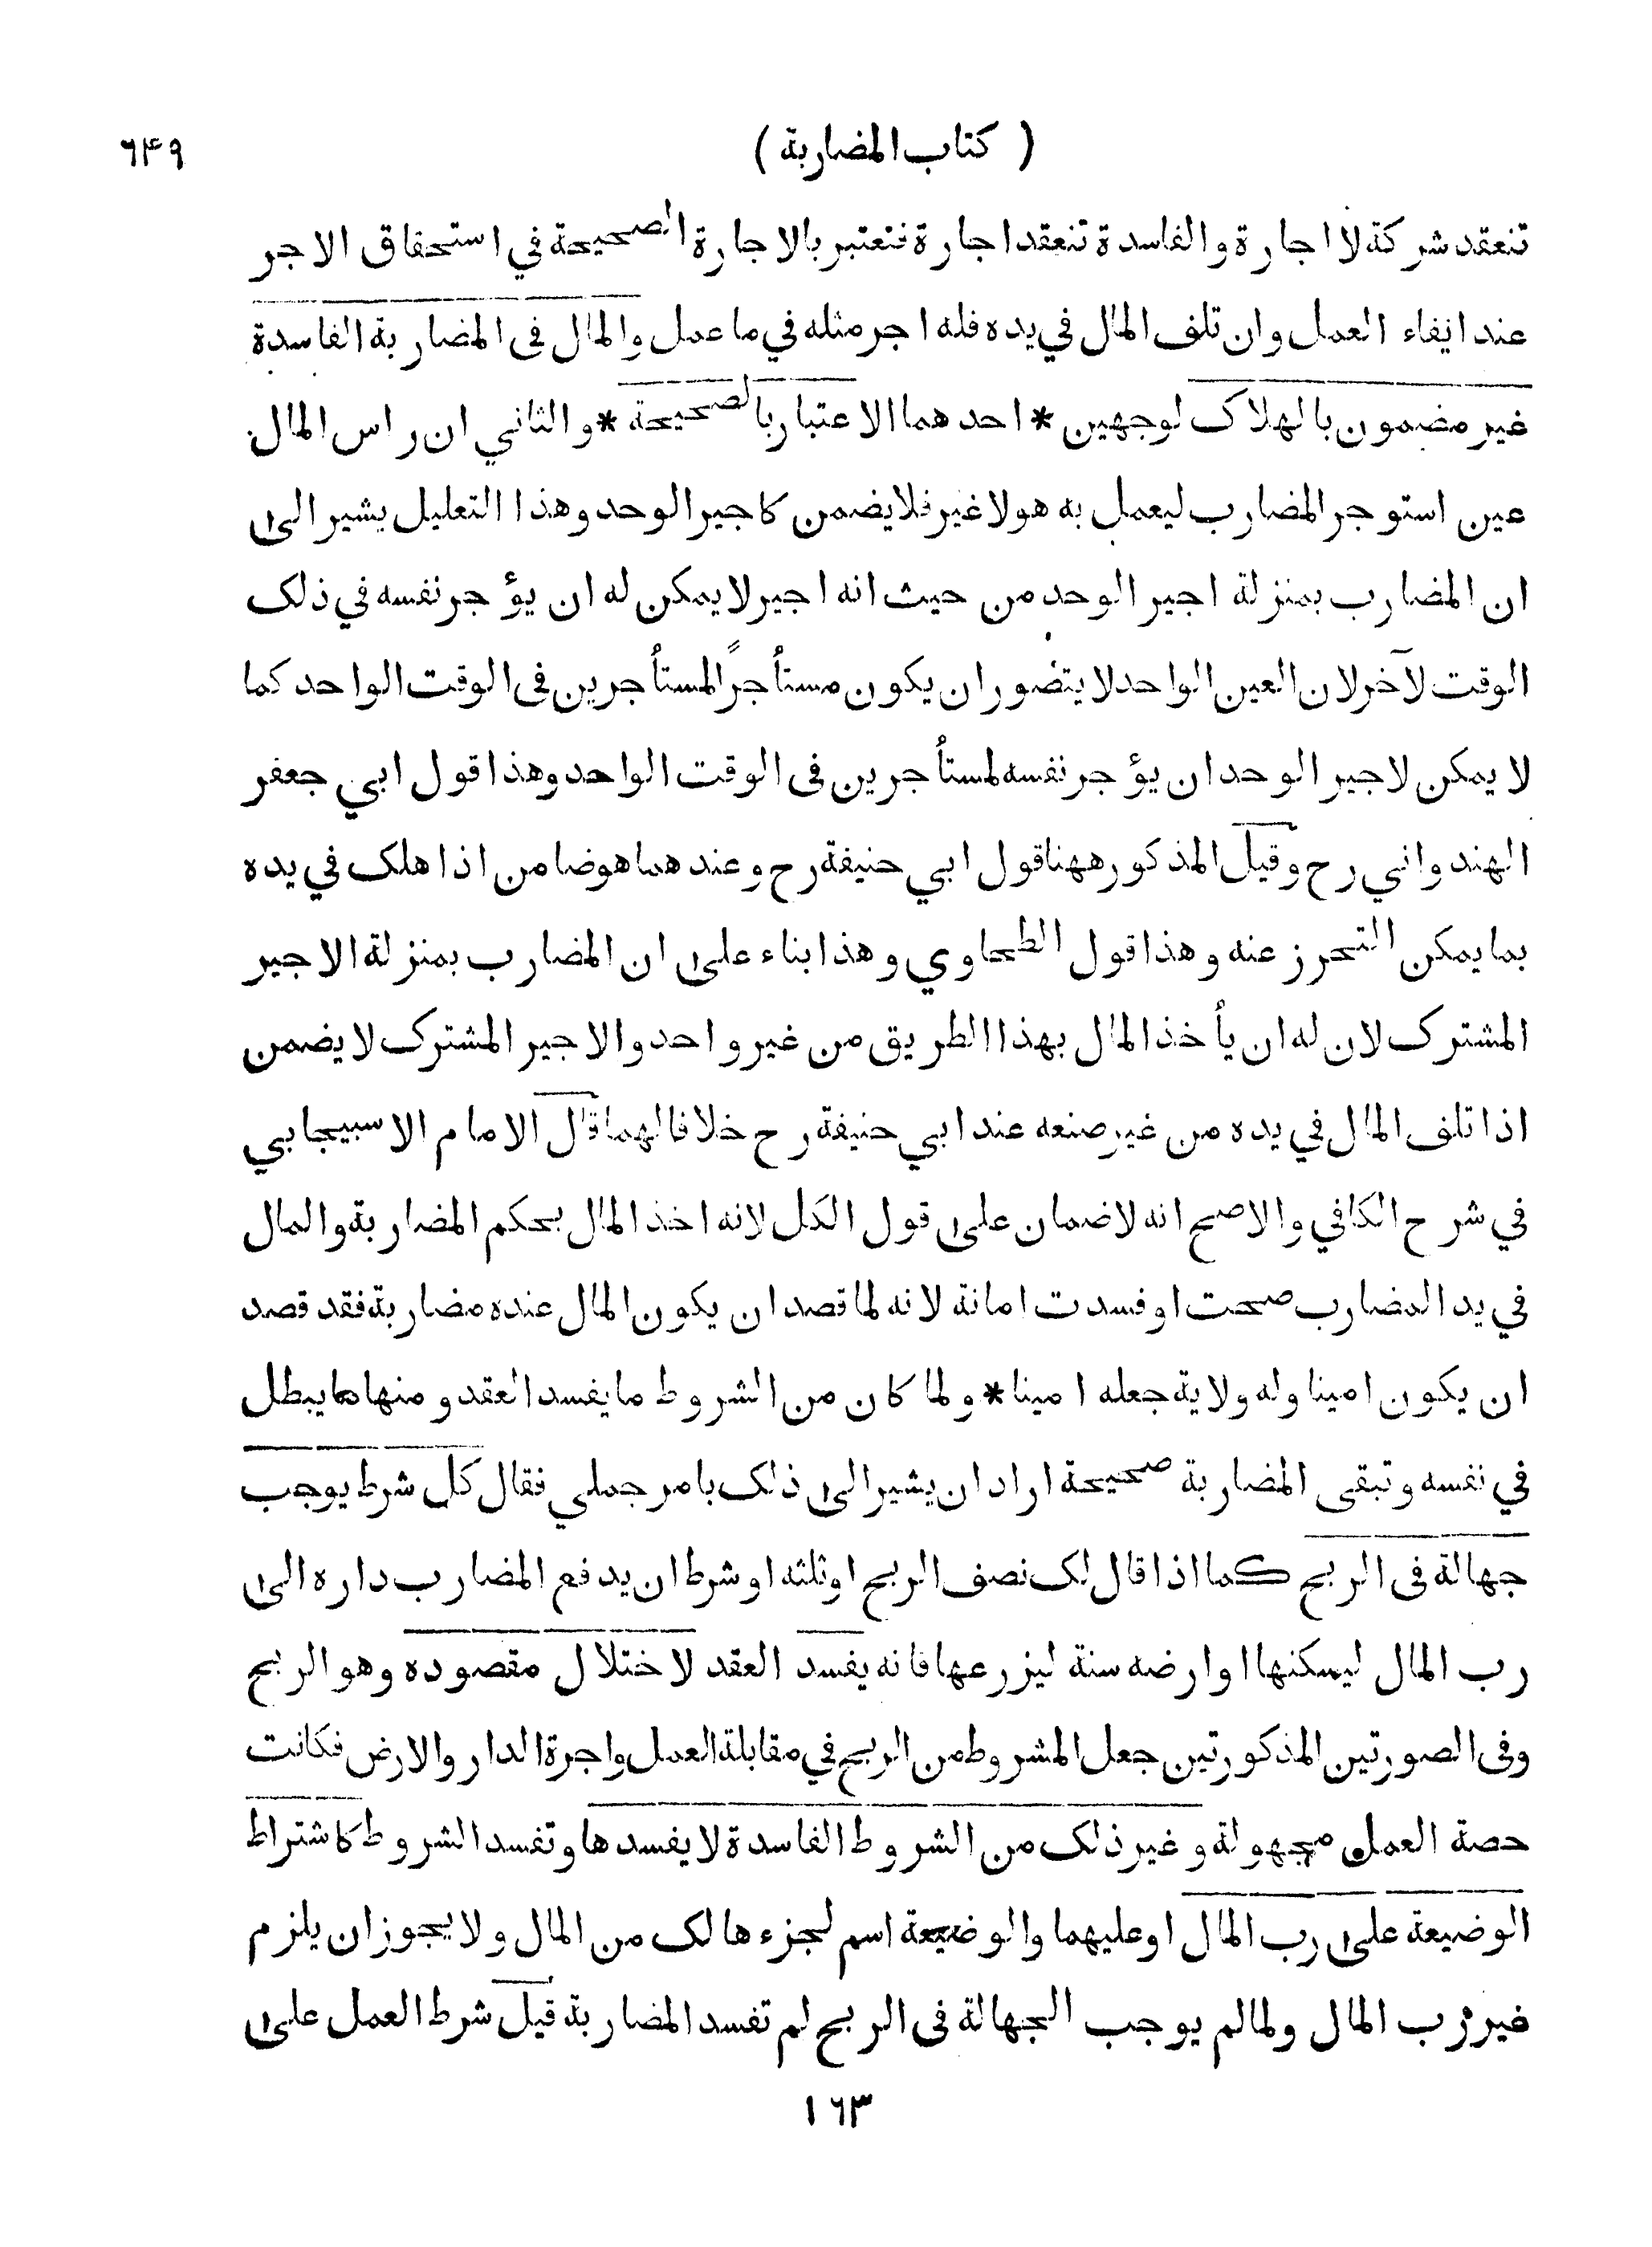 ( كتاب المضاربة )
٦٤٩
تنعقد شركة لا اجارة والفاسدة تنعقد اجارة فتعتبر بالاجارة الصحيحة في استحقاق الاجر
عند ايفاء العمل وان تلف المال في يده فله اجر مثله في ما عمل والمال فى المضاربة الفاسدة
غير مضمون بالهلاك لوجهين * احدهما الاعتبار بالصحيحة * والثاني ان راس المال
عين استوجر المضارب ليعمل به هو لا غير فلا يضمن كاجير الوحد وهذا التعليل يشير الى
ان المضارب بمنزلة اجير الوحد من حيث انه اجير لا يمكن له ان يؤجر نفسه في ذلك
الوقت لآخر لان العين الواحد لا يتصور ان يكون مستأجرًا لمستأجرين فى الوقت الواحد كما
لا يمكن لاجير الوحد ان يؤجر نفسه لمستأجرين فى الوقت الواحد وهذا قول ابي جعفر
الهندواني رح وقيل المذكور ههنا قول ابي حنيفة رح وعندهما هو ضامن اذا هلك في يده
بما يمكن التحرز عنه وهذا قول الطحاوي وهذا بناء على ان المضارب بمنزلة الاجير
المشترك لان له ان يأخذ المال بهذا الطريق من غير واحد والاجير المشترك لا يضمن
اذا تلف المال في يده من غير صنعه عند ابي حنيفة رح خلافا لهما قال الامام الاسبيجابي
في شرح الكافي والاصح انه لا ضمان على قول الكل لانه اخذ المال بحكم المضاربة والمال
في يد المضارب صحت او فسدت امانة لانه لما قصد ان يكون المال عنده مضاربة فقد قصد
ان يكون امينا وله ولاية جعله امينا * ولما كان من الشروط ما يفسد العقد ومنها ما يبطل
في نفسه وتبقى المضاربة صحيحة اراد ان يشير الى ذلك بامر جملي فقال كل شرط يوجب
جهالة فى الربح كما اذا قال لك نصف الربح او ثلثه او شرط ان يدفع المضارب داره الى
رب المال ليسكنها او ارضه سنة ليزرعها فانه يفسد العقد لاختلال مقصوده وهو الربح
وفى الصورتين المذكورتين جعل المشروط من الربح في مقابلة العمل واجرة الدار والارض فكانت
حصة العمل مجهولة وغير ذلك من الشروط الفاسدة لا يفسدها وتفسد الشروط كاشتراط
الوضيعة على رب المال او عليهما والوضيعة اسم لجزء هالك من المال ولا يجوز ان يلزم
غير رب المال ولما لم يوجب الجهالة فى الربح لم تفسد المضاربة قيل شرط العمل على
١٦٣